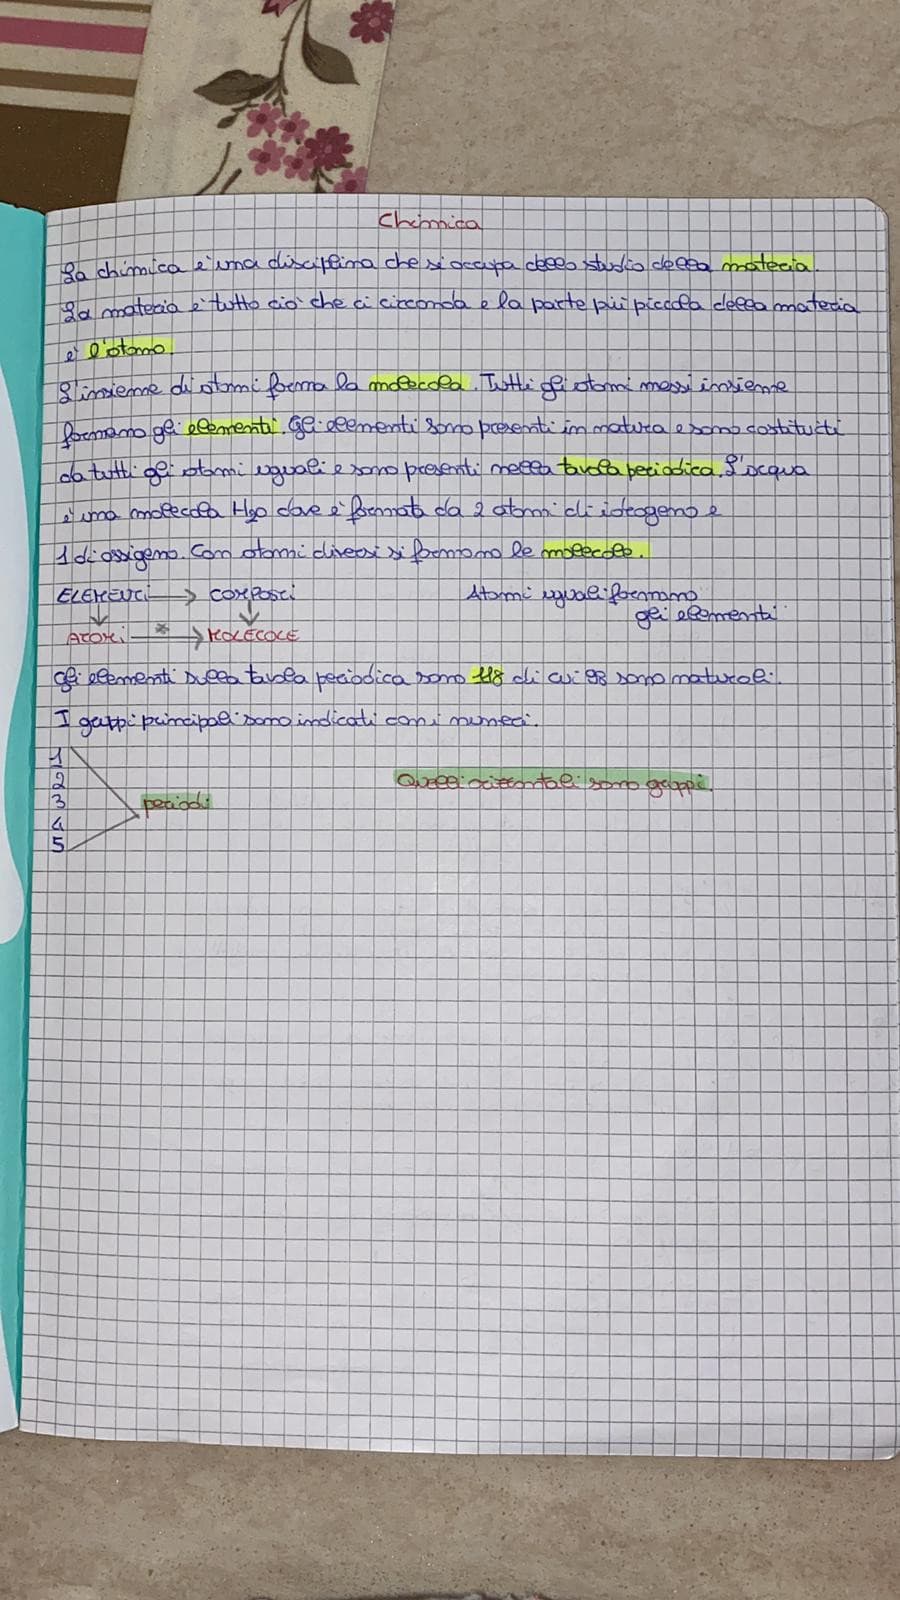 Chimica
La chimica è una disciplina che si occupa dello studio della materia.
La materia è tutto ciò che ci circonda e la parte più piccola della materia
è l'atomo.
L'insieme di atomi forma la molecola. Tutti gli atomi messi insieme
formano gli elementi. Gli elementi sono presenti in natura e sono costituiti
da tutti gli atomi uguali e sono presenti nella tavola periodica. L'acqua
è una molecola H2o dove è formata da 2 atomi di idrogeno e
1 di ossigeno. Con atomi diversi si formano le molecole.
ELEMENTI → COMPOSTI
Atomi uguali formano
gli elementi
↓ ↓
ATOMI * → MOLECOLE
Gli elementi sulla tavola periodica sono 118 di cui 98 sono naturali.
I gruppi principali sono indicati con i numeri.
1
2
3
4
5
periodi
Quelli orizzontali sono gruppi.